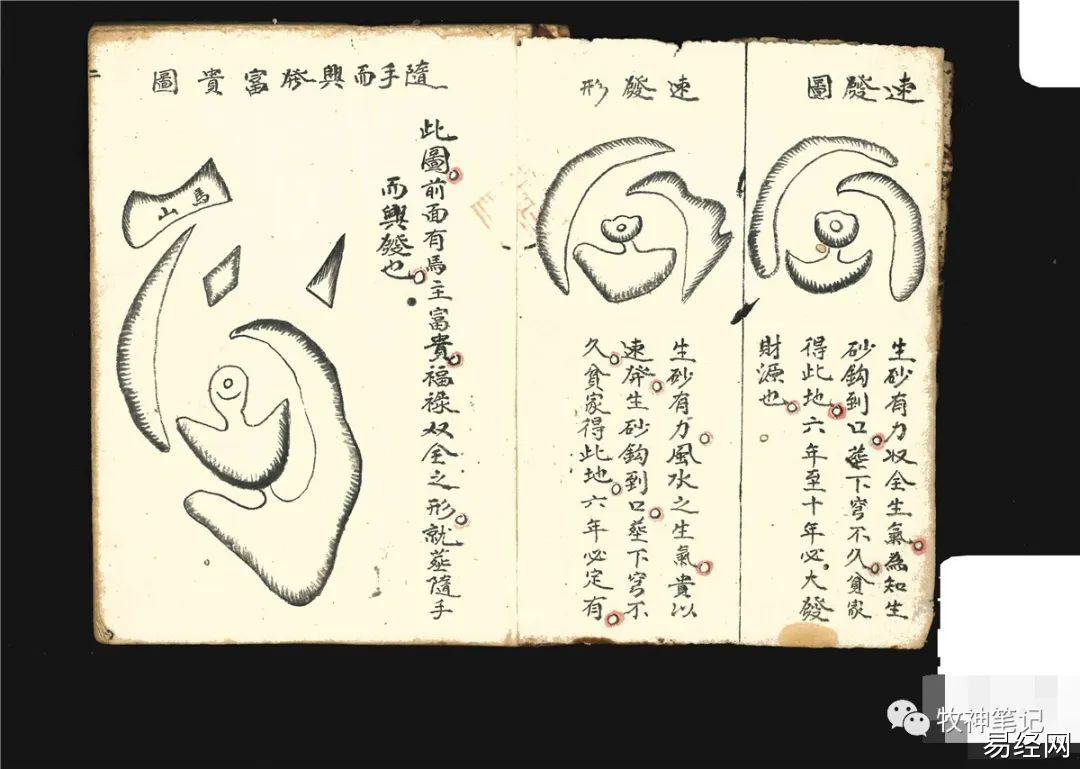 速發圖
生砂有力収全生氣為知生
砂鈎到口塟下穹不久貧家
得此地六年至十年必大發
財源也
速發形
生砂有力風水之生氣貴以
速發生砂鈎到口塟下穹不
久貧家得此地六年必定有
隨手而興發富貴圖
此圖前面有馬主富貴福祿双全之形就塟隨手
而興發也
馬山
牧神笔记
易经网